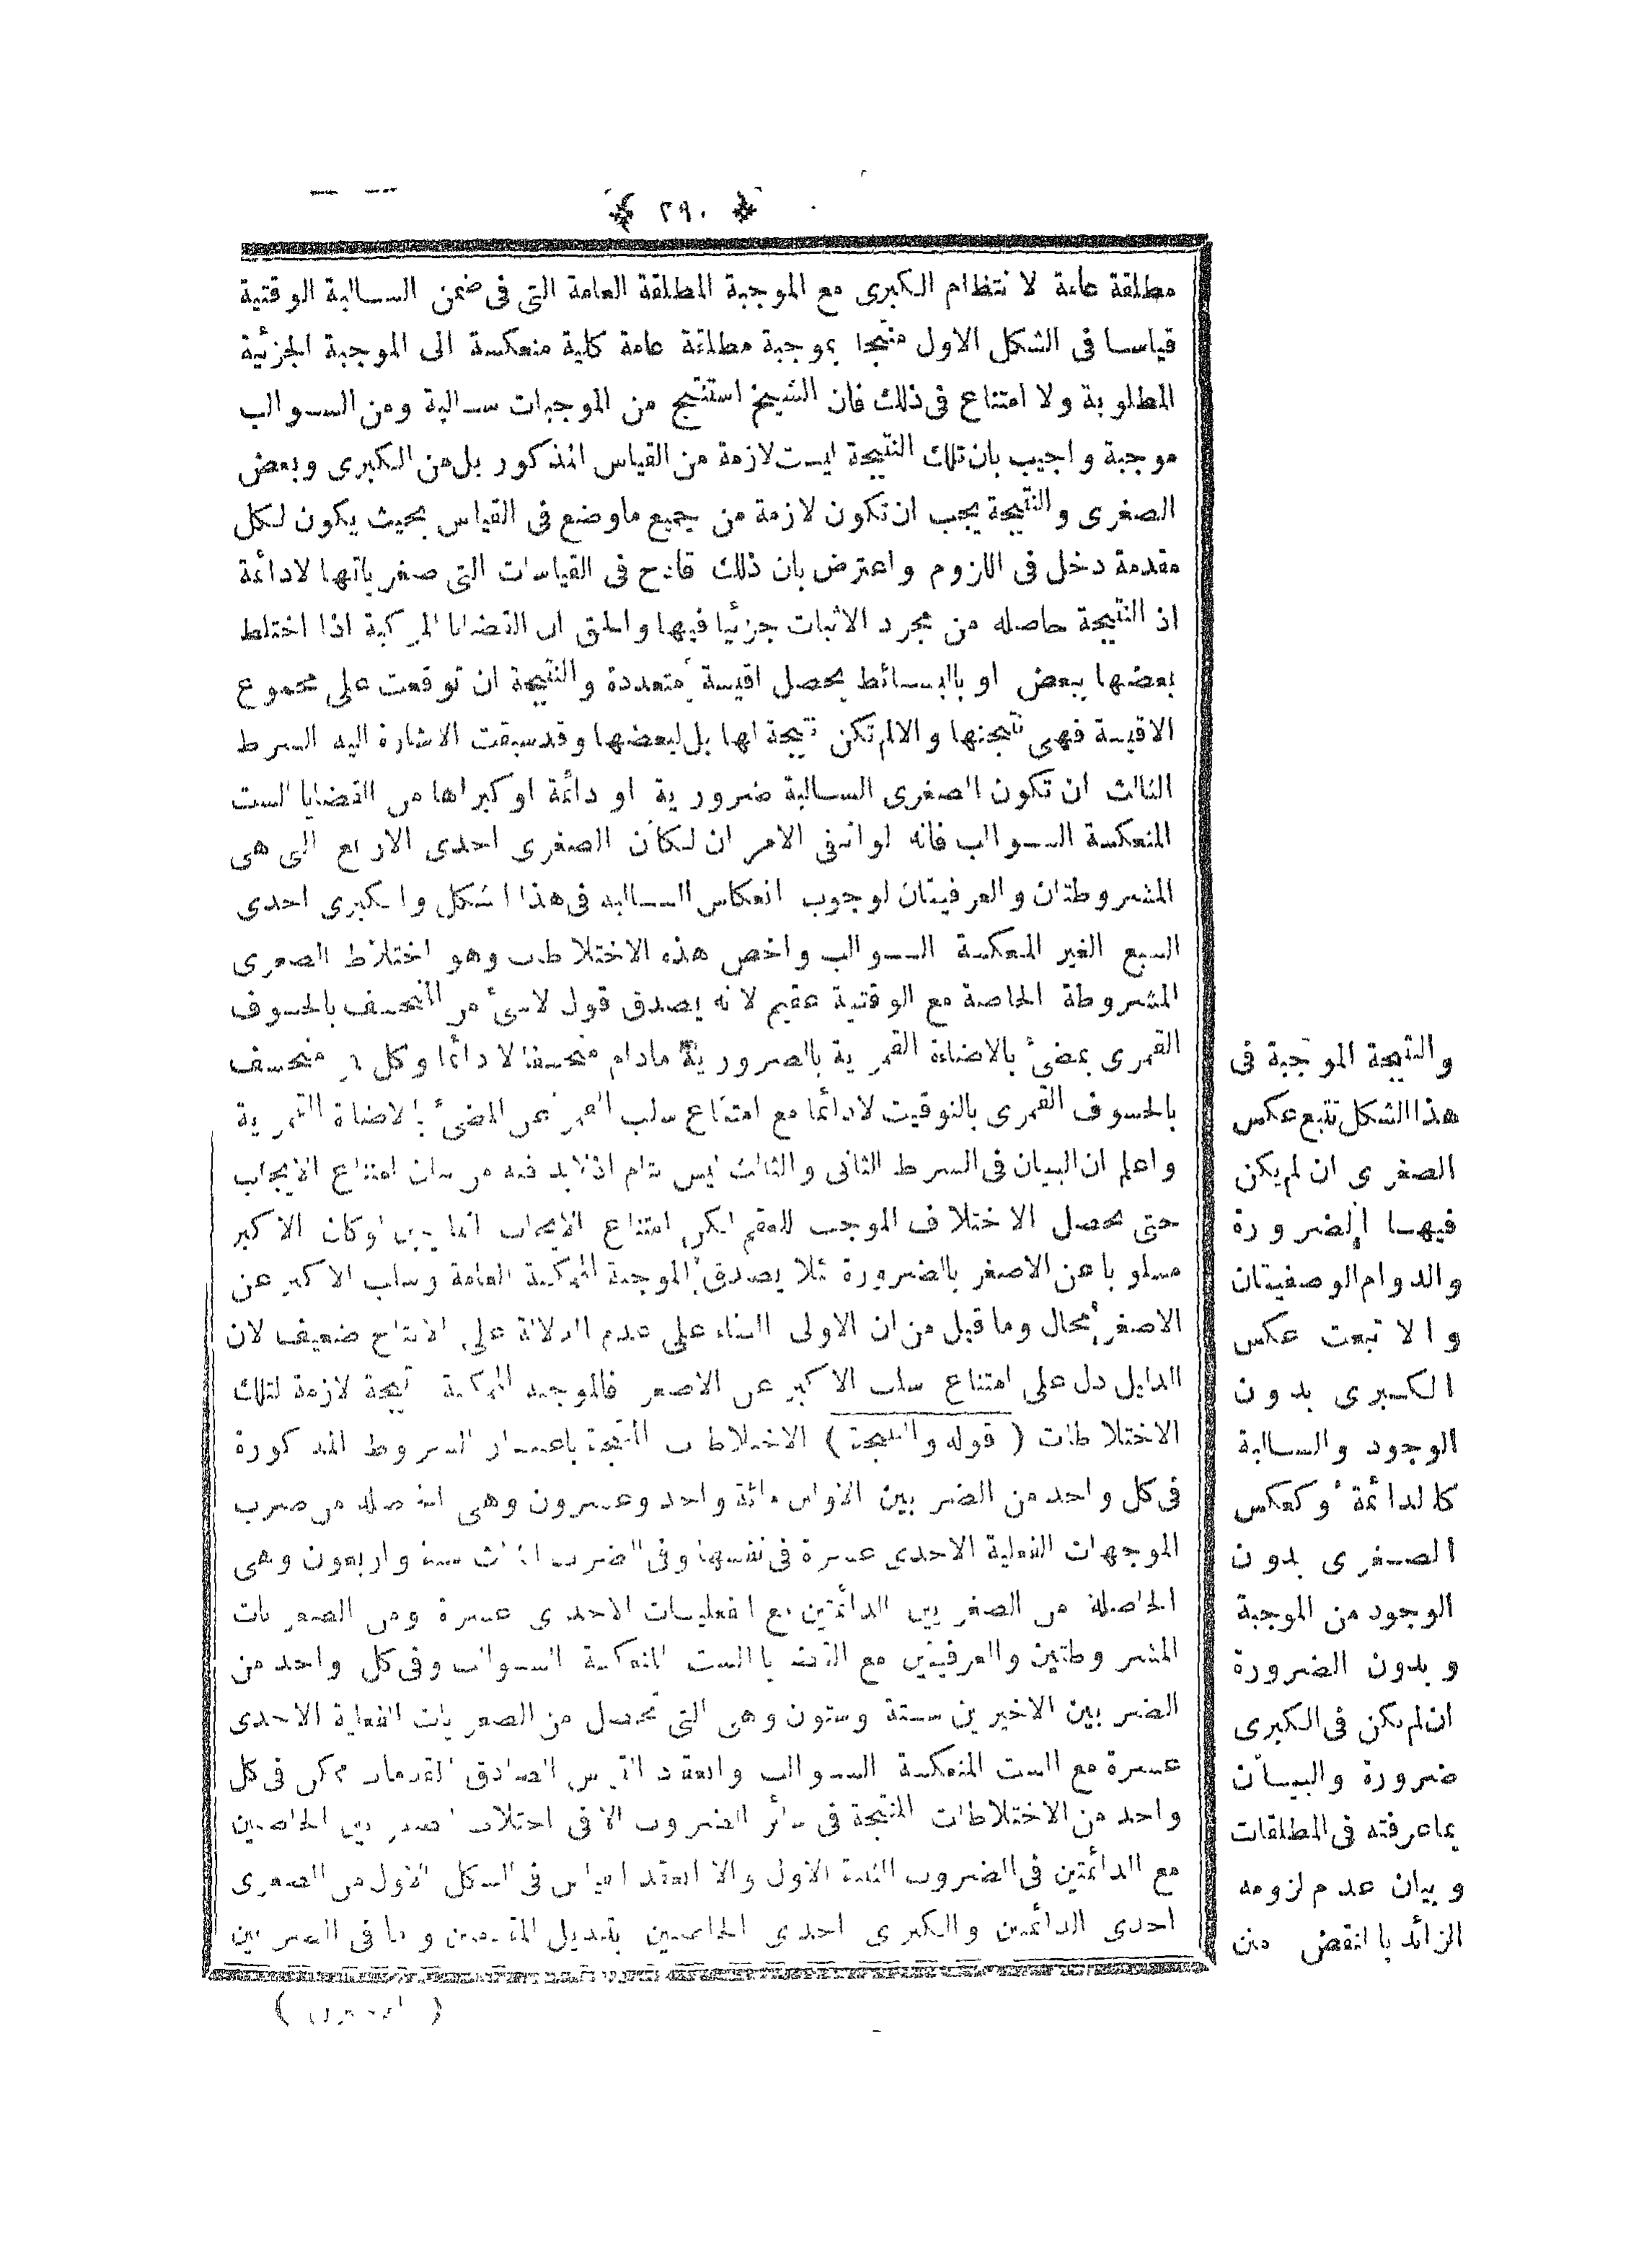 ٢٩٠
مطلقة عامة لانتظام الكبرى مع الموجبة المطلقة العامة التى فى ضمن السالبة الوقتية
قياسا فى الشكل الاول منتجا بموجبة مطلقة عامة كلية منعكسة الى الموجبة الجزئية
المطلوبة ولا امتناع فى ذلك فان الشيخ استنتج من الموجبات سالبة ومن السوالب
موجبة واجيب بان تلك النتيجة ليست لازمة من القياس المذكور بل من الكبرى وبعض
الصغرى والنتيجة يجب ان تكون لازمة من جميع ماوضع فى القياس بحيث يكون لكل
مقدمة دخل فى اللزوم واعترض بان ذلك قادح فى القياسات التى صغرياتها لادائمة
اذ النتيجة حاصله من مجرد الاثبات جزئيا فيها والحق ان القضايا المركبة اذا اختلط
بعضها ببعض او بالبسائط يحصل اقيسة متعددة والنتيجة ان توقفت على مجموع
الاقيسة فهى نتيجتها والالم تكن نتيجة لها بل لبعضها وقدسبقت الاشارة اليه الشرط
الثالث ان تكون الصغرى السالبة ضرورية او دائمة او كبراها من القضايا الست
المنعكسة السوالب فانه لو انتفى الامر ان لكان الصغرى احدى الاربع التى هى
المشروطتان والعرفيتان لوجوب انعكاس السالبه فى هذا الشكل والكبرى احدى
السبع الغير المنعكسة السوالب واخص هذه الاختلاطات وهو اختلاط الصغرى
المشروطة الخاصة مع الوقتية عقيم لانه يصدق قول لاشئ من المنخسف بالخسوف
القمرى بمضئ بالاضاءة القمرية بالضرورية مادام منخسفا لا دائما وكل قمر منخسف
بالخسوف القمرى بالتوقيت لادائما مع امتناع سلب القمر عن المضئ بالاضاءة القمرية
واعلم ان البيان فى الشرط الثانى والثالث ليس بتام اذ لابد فيه من بيان امتناع الايجاب
حتى يحصل الاختلاف الموجب للعقم لكن امتناع الايجاب انما يتبين لوكان الاكبر
مسلوبا عن الاصغر بالضرورة لئلا يصدق الموجبة الممكنة العامة وسلب الاكبر عن
الاصغر محال وما قيل من ان الاولى البناء على عدم الدلالة على الانتاج ضعيف لان
الدليل دل على امتناع سلب الاكبر عن الاصغر فالموجبة الممكنة نتيجة لازمة لتلك
الاختلاطات ( قوله والنتيجة ) الاختلاطات المنتجة باعتبار الشروط المذكورة
فى كل واحد من الضربين الاولين مائة واحد وعشرون وهى الحاصلة من ضرب
الموجهات الفعلية الاحدى عشرة فى نفسها وفى الضرب الثالث ستة واربعون وهى
الحاصلة من الصغريين الدائمتين مع الفعليات الاحدى عشرة ومن الصغريات
المشروطتين والعرفيتين مع القضايا الست المنعكسة السوالب وفى كل واحد من
الضربين الاخيرين ستة وستون وهى التى تحصل من الصغريات الفعلية الاحدى
عشرة مع الست المنعكسة السوالب وانعقد القياس الصادق المقدمات ممكن فى كل
واحد من الاختلاطات المنتجة فى سائر الضروب الا فى اختلاط الصغريين الخاصتين
مع الدائمتين فى الضروب الثلثة الاول والا انعقد القياس فى الشكل الاول من الصغرى
احدى الدائمتين والكبرى احدى الخاصتين بتبديل المقدمتين وما فى الضربين
( الاخيرين )
والنتيجة الموجبة فى
هذا الشكل تتبع عكس
الصغرى ان لم يكن
فيهما الضرورة
والدوام الوصفيتان
والا تبعت عكس
الكبرى بدون
الوجود والسالبة
كالدائمة او كعكس
الصغرى بدون
الوجود من الموجبة
وبدون الضرورة
ان لم يكن فى الكبرى
ضرورة والبيان
بماعرفته فى المطلقات
وبيان عدم لزومه
الزائد بالنقض من